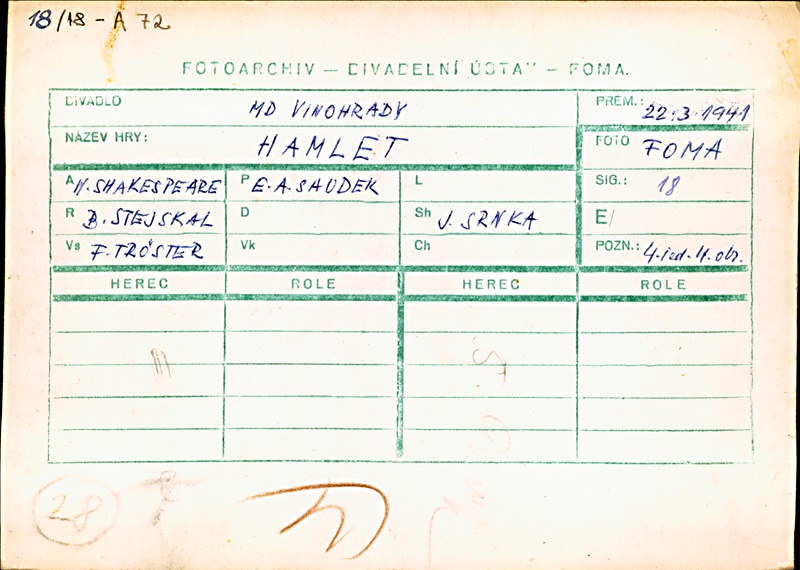 18/18 - A 72
FOTOARCHIV — DIVADELNÍ ÚSTAV — FOMA.
DIVADLO MD VINOHRADY PREM.: 22.3.1941
NÁZEV HRY: HAMLET FOTO FOMA
A W. SHAKESPEARE P E. A. SAUDEK L SIG.: 18
R B. STEJSKAL D Sh J. SRNKA E/
Vs F. TRÖSTER Vk Ch POZN.: 4. jed. 4. obr.
HEREC ROLE HEREC ROLE
28